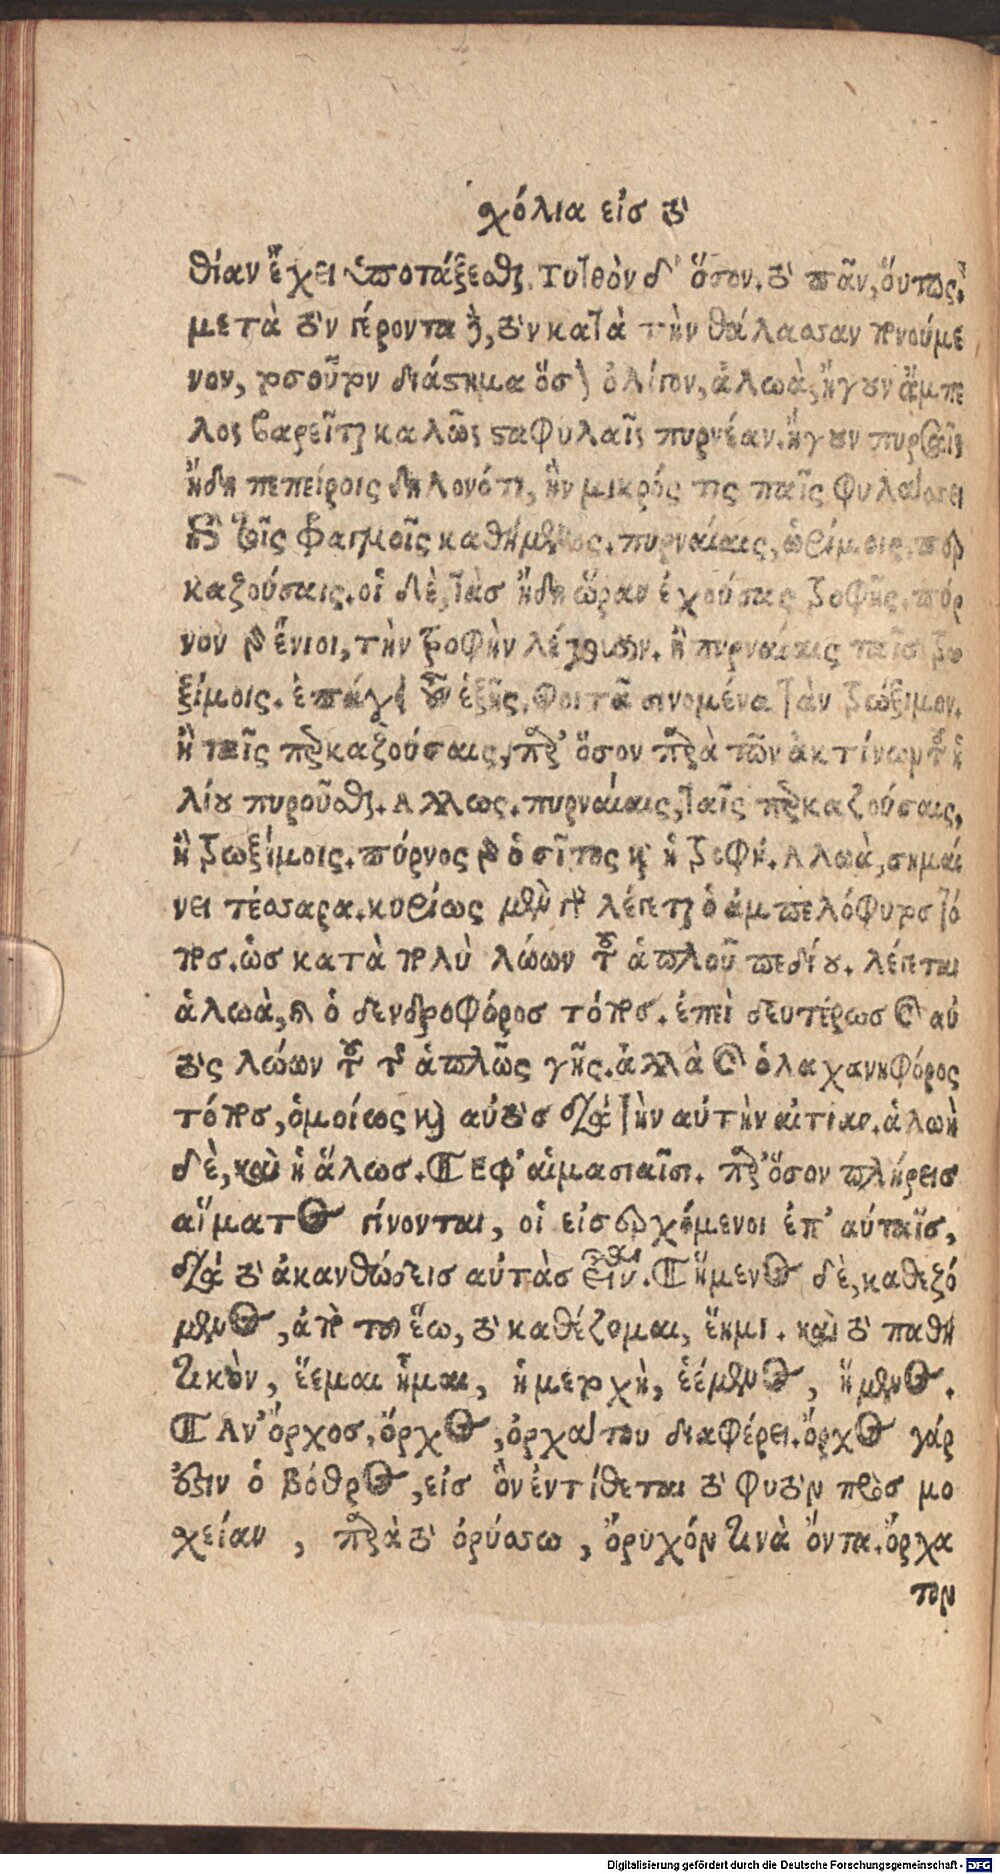 χόλια εἰσ τὸ
θίαν ἔχει ὑποτάξεσθαι. Τυτθὸν δ' ὅσον. τὸ πᾶν, οὕτως.
μετὰ τὸν γέροντα δὲ, τὸν κατὰ τὴν θάλασσαν γενούμε
νον, τοσοῦτον διάστημα ὅσον ὀλίγον, ἀλωὰ, ἤγουν ἄμπε
λος βαρεῖται καλῶς σταφυλαῖς πυρνέαν. ἤγουν πυρσαῖς
ἤδη πεπείροις δηλονότι, ἣν μικρός τις παῖς φυλάσσει
ἐν τοῖς φραγμοῖς καθήμενος. πυρναίαις, ὡρίμοις. περ
καζούσαις. οἱ δὲ, τὰσ ἤδη ὥραν ἐχούσας τροφῆς. πύρ
νον γὰρ ἔνιοι, τὴν τροφὴν λέγουσιν. ἢ πυρναίαις ταῖσ τρω
ξίμοις. ἐπάγει οὖν ἑξῆς, φοιτᾶ σινομένα τὰν τρώξιμον.
ἢ ταῖς περκαζούσαις, παρ' ὅσον παρὰ τῶν ἀκτίνων τοῦ ἡ
λίου πυροῦσθαι. Αλλως. πυρναίαις, ταῖς περκαζούσαις,
ἢ τρωξίμοις. πύρνος γὰρ ὁ σῖτος καὶ ἡ τροφή. Αλωὰ, σημαί
νει τέσσαρα. κυρίως μὲν γὰρ λέγεται ὁ ἀμπελόφυτοσ τό
ποσ. ὡσ κατὰ πολὺ λώων τοῦ ἁπλοῦ πεδίου. λέγεται
ἀλωὰ, καὶ ὁ δενδροφόροσ τόποσ. ἐπεὶ δευτέρωσ καὶ αὐ
τὸς λώων τοῦ τῆς ἁπλῶς γῆς. ἀλλὰ καὶ ὁ λαχανηφόρος
τόποσ, ὁμοίως καὶ αὐτὸσ διὰ τὴν αὐτὴν αἰτίαν. ἁλωὴ
δὲ, καὶ ἡ ἅλωσ. Εφ' αἱμασιαῖσι. παρ' ὅσον πλήρεισ
αἵματος γίνονται, οἱ εἰσερχόμενοι ἐπ' αὐταῖσ,
διὰ τὸ ἀκανθώδεισ αὐτὰσ εἶναι. ἥμενος δὲ, καθεζό
μενος, ἀπὸ τοῦ ἕω, τὸ καθέζομαι, ἕημι. καὶ τὸ παθη
τικὸν, ἕεμαι ἧμαι, ἡ μετοχὴ, ἑέμενος, ἥμενος.
Αν' ὄρχοσ, ὄρχος, ὀρχάτου διαφέρει. ὄρχος γάρ
ἐστιν ὁ βόθρος, εἰσ ὃν ἐντίθεται τὸ φυτὸν πρὸσ μο
χείαν, παρὰ τὸ ὀρύσσω, ὄρυχόν τινὰ ὄντα. ὄρχα
τον
Digitalisierung gefördert durch die Deutsche Forschungsgemeinschaft - DFG